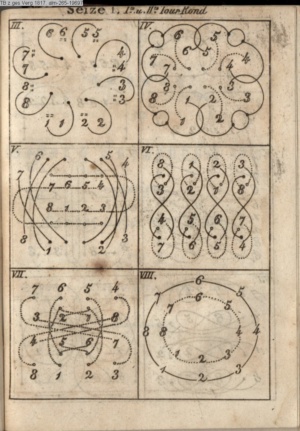 Seize
III.
6 6 5 5
7 4
7 4
8 3
8 3
1 1 2 2
IV.
6 5
7 4
8 3
1 2
V.
6 5
7 4
7 6 5 4
8 1 2 3
8 1 2 3
VI.
8 1 2 3
3 2 1 8
4 5 6 7
7 6 5 4
VII.
7 6 5 4
2 1
3 8
4 7
5 6
8 1 2 3
VIII.
6
7 6 5
7 5
8 8 4 4
1 2 3
1 2 3